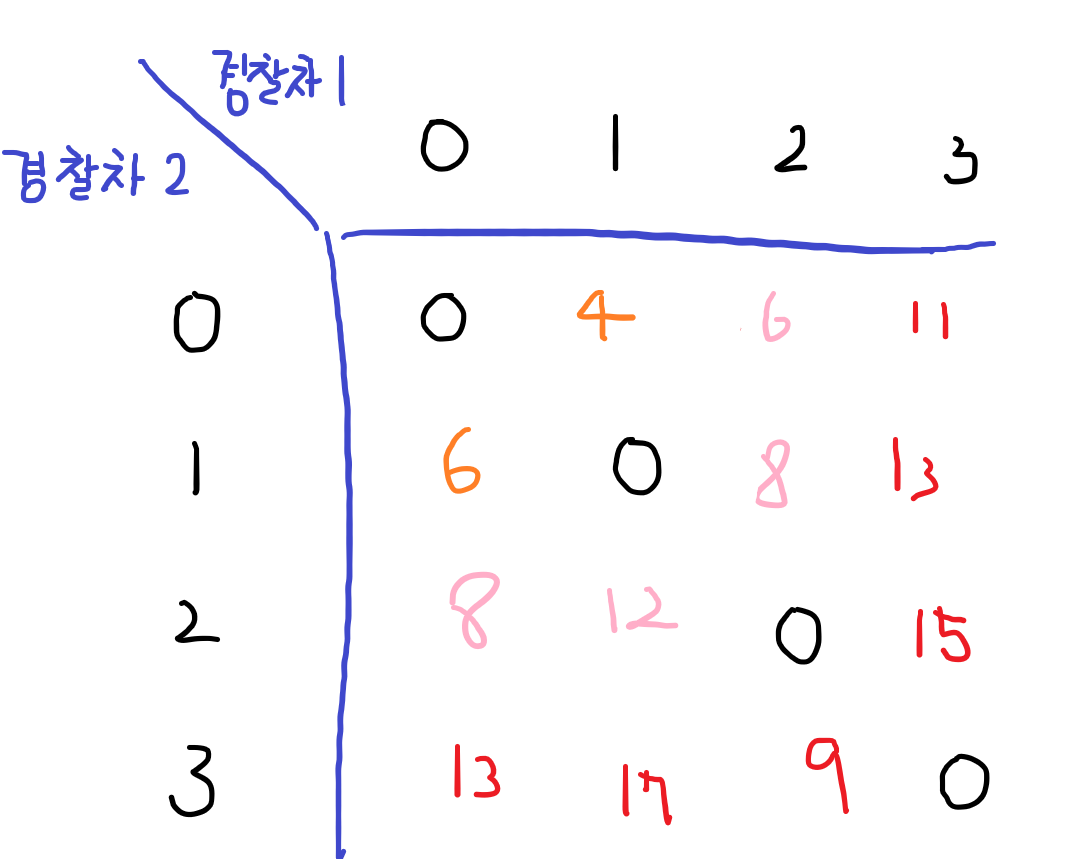 경찰차 1
경찰차 2
0 1 2 3
0 0 4 6 11
1 6 0 8 13
2 8 12 0 15
3 13 17 9 0